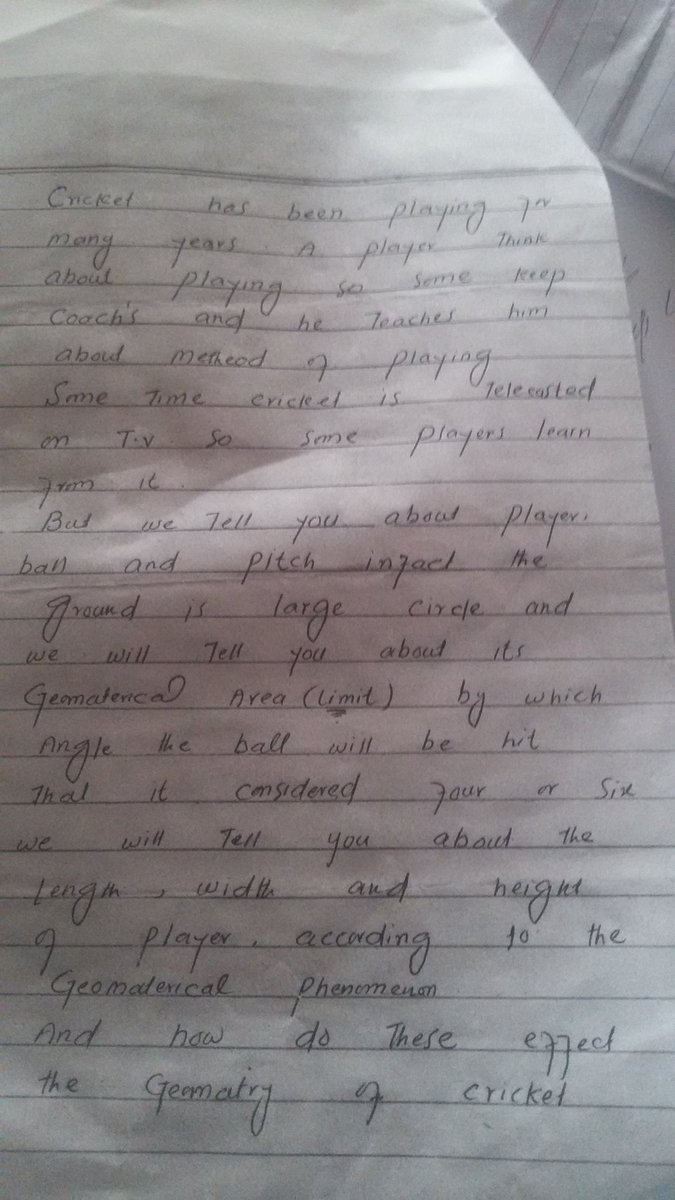 Cricket has been playing for
many years. A player Think
about playing so some keep
Coach's and he Teaches him
about metheod of playing
Some Time cricket is Telecasted
on T.V so some players learn
from it.
But we Tell you about player,
ball and pitch infact the
ground is large circle and
we will Tell you about its
Geomaterical Area (limit) by which
Angle the ball will be hit
That it considered four or Six
we will Tell you about the
Length, width and height
of player, according to the
Geomaterical Phenomenon
And how do These effect
the Geomatry of cricket